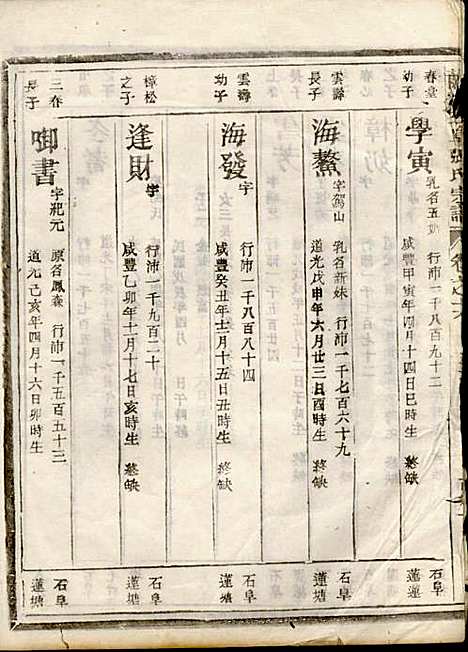 張氏宗譜
春堂
幼子
學寅
乳名五妹 行沛一千八百九十二
咸豐甲寅年四月十四日巳時生 終缺
石阜
蓮塘
雲濤
長子
海鰲
字駕山 乳名新妹 行沛一千七百六十九
道光戊申年六月廿三日酉時生 終缺
石阜
蓮塘
雲濤
幼子
海發
字 行沛一千八百八十四
咸豐癸丑年十二月十五日丑時生 終缺
石阜
蓮塘
樟松
之子
逢財
字 行沛一千九百二十
咸豐乙卯年十一月十七日亥時生 終缺
石阜
蓮塘
三春
長子
啣書
字紀元 原名鳳森 行沛一千五百五十三
道光己亥年四月十六日卯時生
石阜
蓮塘